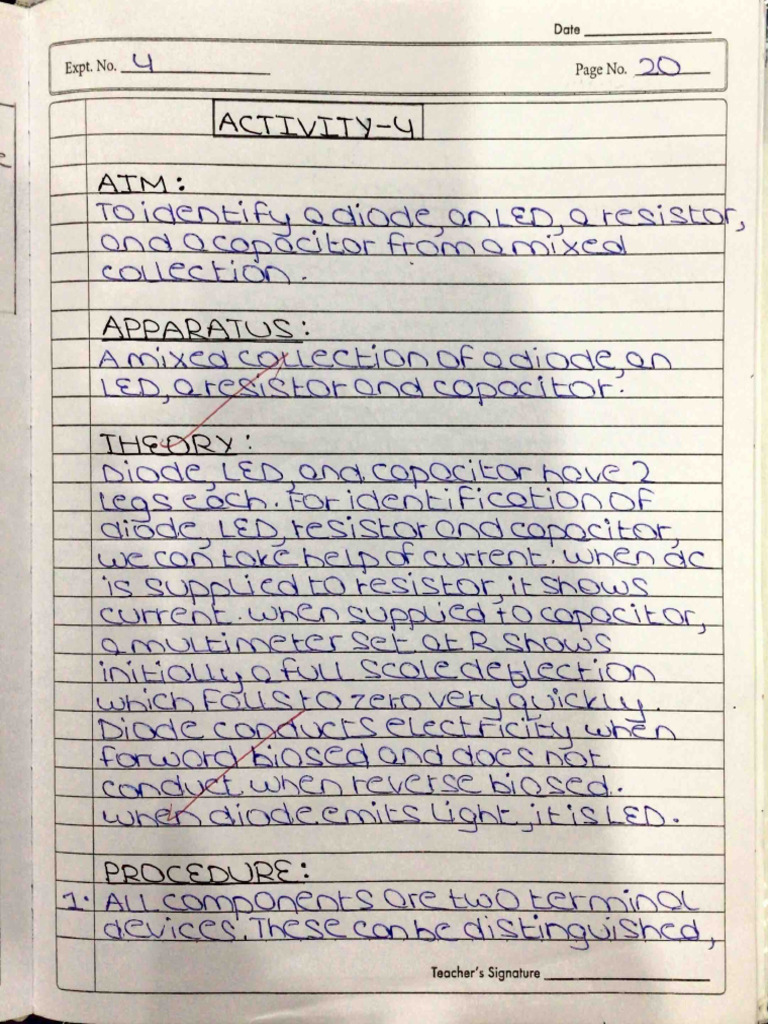 Date
Expt. No. 4
Page No. 20
ACTIVITY-4
AIM:
To identify a diode, an LED, a resistor,
and a capacitor from a mixed
collection.
APPARATUS:
A mixed collection of a diode, an
LED, a resistor and capacitor.
THEORY:
Diode, LED, and capacitor have 2
legs each. For identification of
diode, LED, resistor and capacitor,
we can take help of current. When dc
is supplied to resistor, it shows
current. When supplied to capacitor,
a multimeter set at R shows
initially a full scale deflection
which falls to zero very quickly.
Diode conducts electricity when
forward biased and does not
conduct when reverse biased.
When diode emits light, it is LED.
PROCEDURE:
1. All components are two terminal
devices. These can be distinguished,
Teacher's Signature